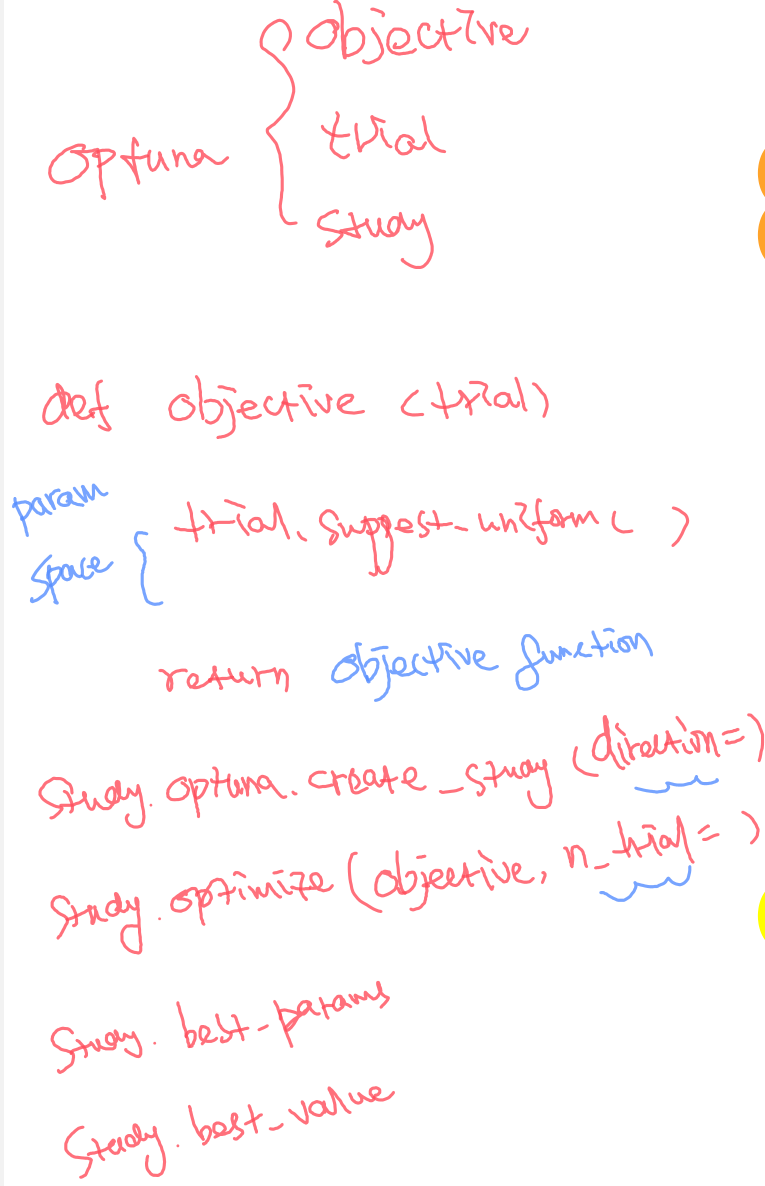 optuna { objective
trial
study
def objective (trial)
param
space { trial. suggest_uniform ( )
return objective function
Study. optuna. create_study (direction=)
Study. optimize (objective, n_trial= )
Study. best_params
Study. best_value